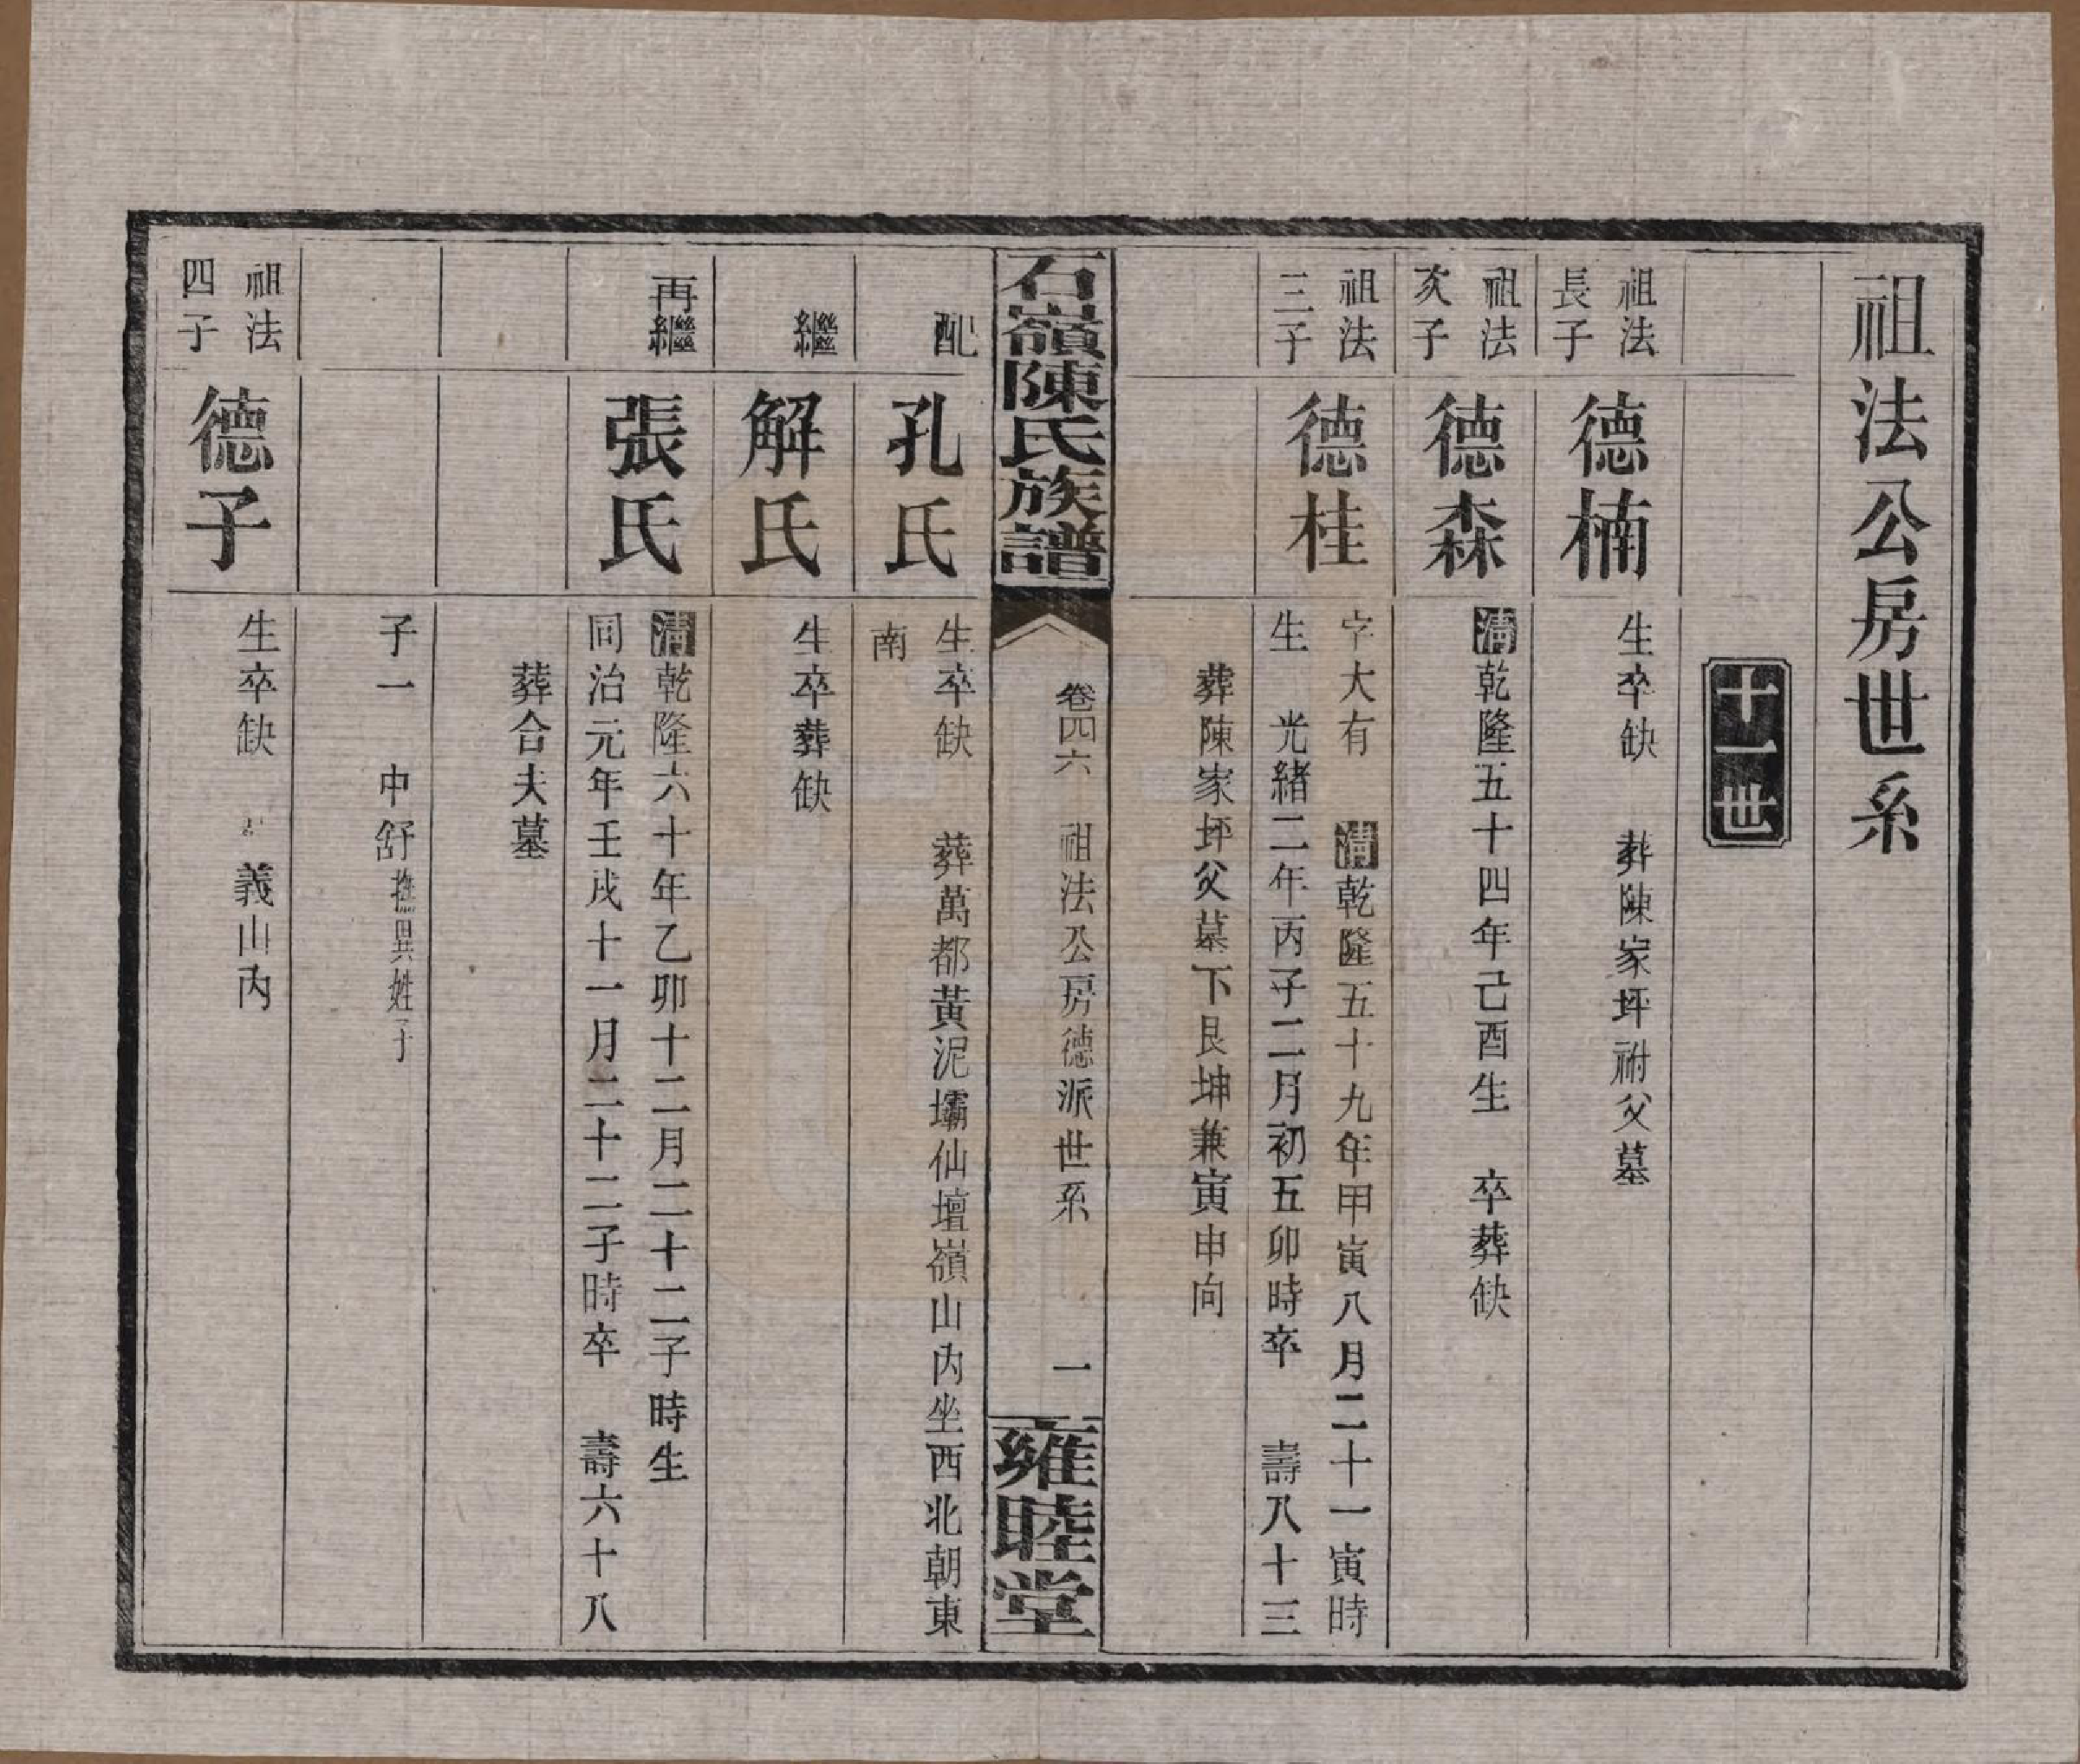 祖法公房世系
十一世
祖法長子
德楠
生卒缺　葬陳家坪祔父墓
祖法次子
德森
清乾隆五十四年己酉生　卒葬缺
祖法三子
德桂
字大有　清乾隆五十九年甲寅八月二十一寅時
生　光緒二年丙子二月初五卯時卒　壽八十三
葬陳家坪父墓下艮坤兼寅申向
石嶺陳氏族譜
卷四六　祖法公房德派世系　一
雍睦堂
配
孔氏
生卒缺　葬萬都黃泥壩仙壇嶺山內坐西北朝東
南
繼
解氏
生卒葬缺
再繼
張氏
清乾隆六十年乙卯十二月二十二子時生
同治元年壬戌十一月二十二子時卒　壽六十八
葬合夫墓
子一　中舒撫異姓子
祖法四子
德子
生卒缺　義山內